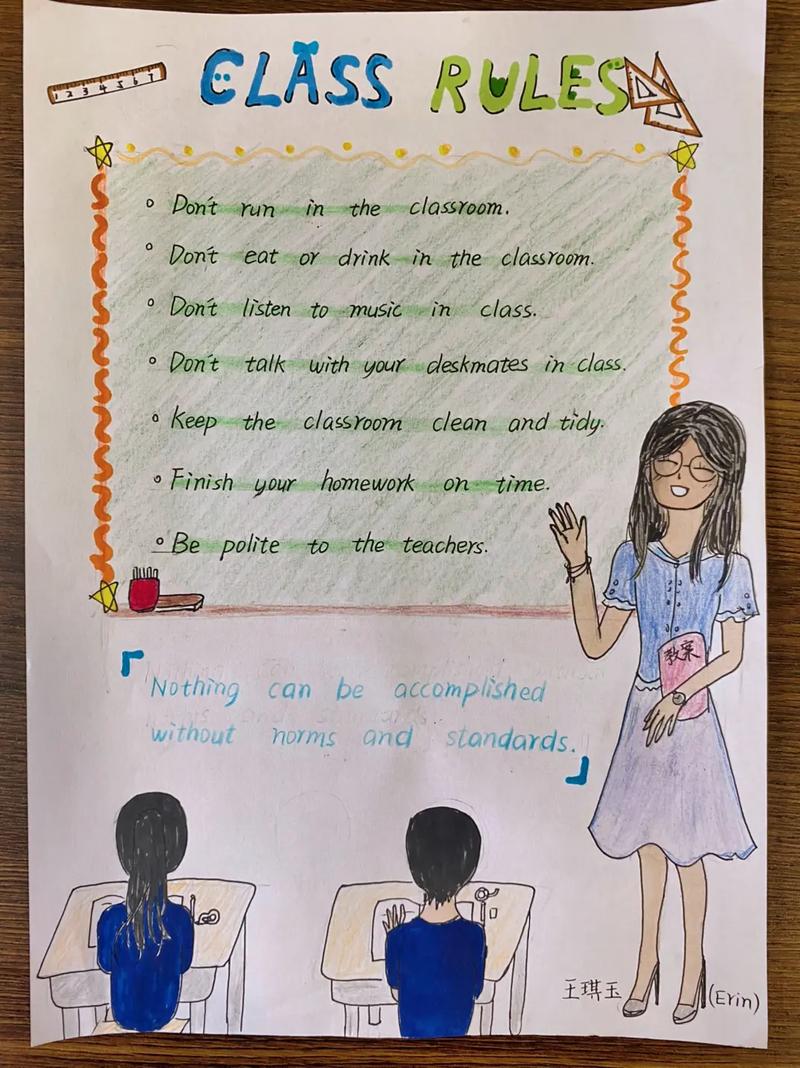 1 2 3 4 5 6 7
CLASS RULES
Don't run in the classroom.
Don't eat or drink in the classroom.
Don't listen to music in class.
Don't talk with your deskmates in class.
Keep the classroom clean and tidy.
Finish your homework on time.
Be polite to the teachers.
教案
「Nothing can be accomplished
without norms and standards.」
王琪玉 (Erin)